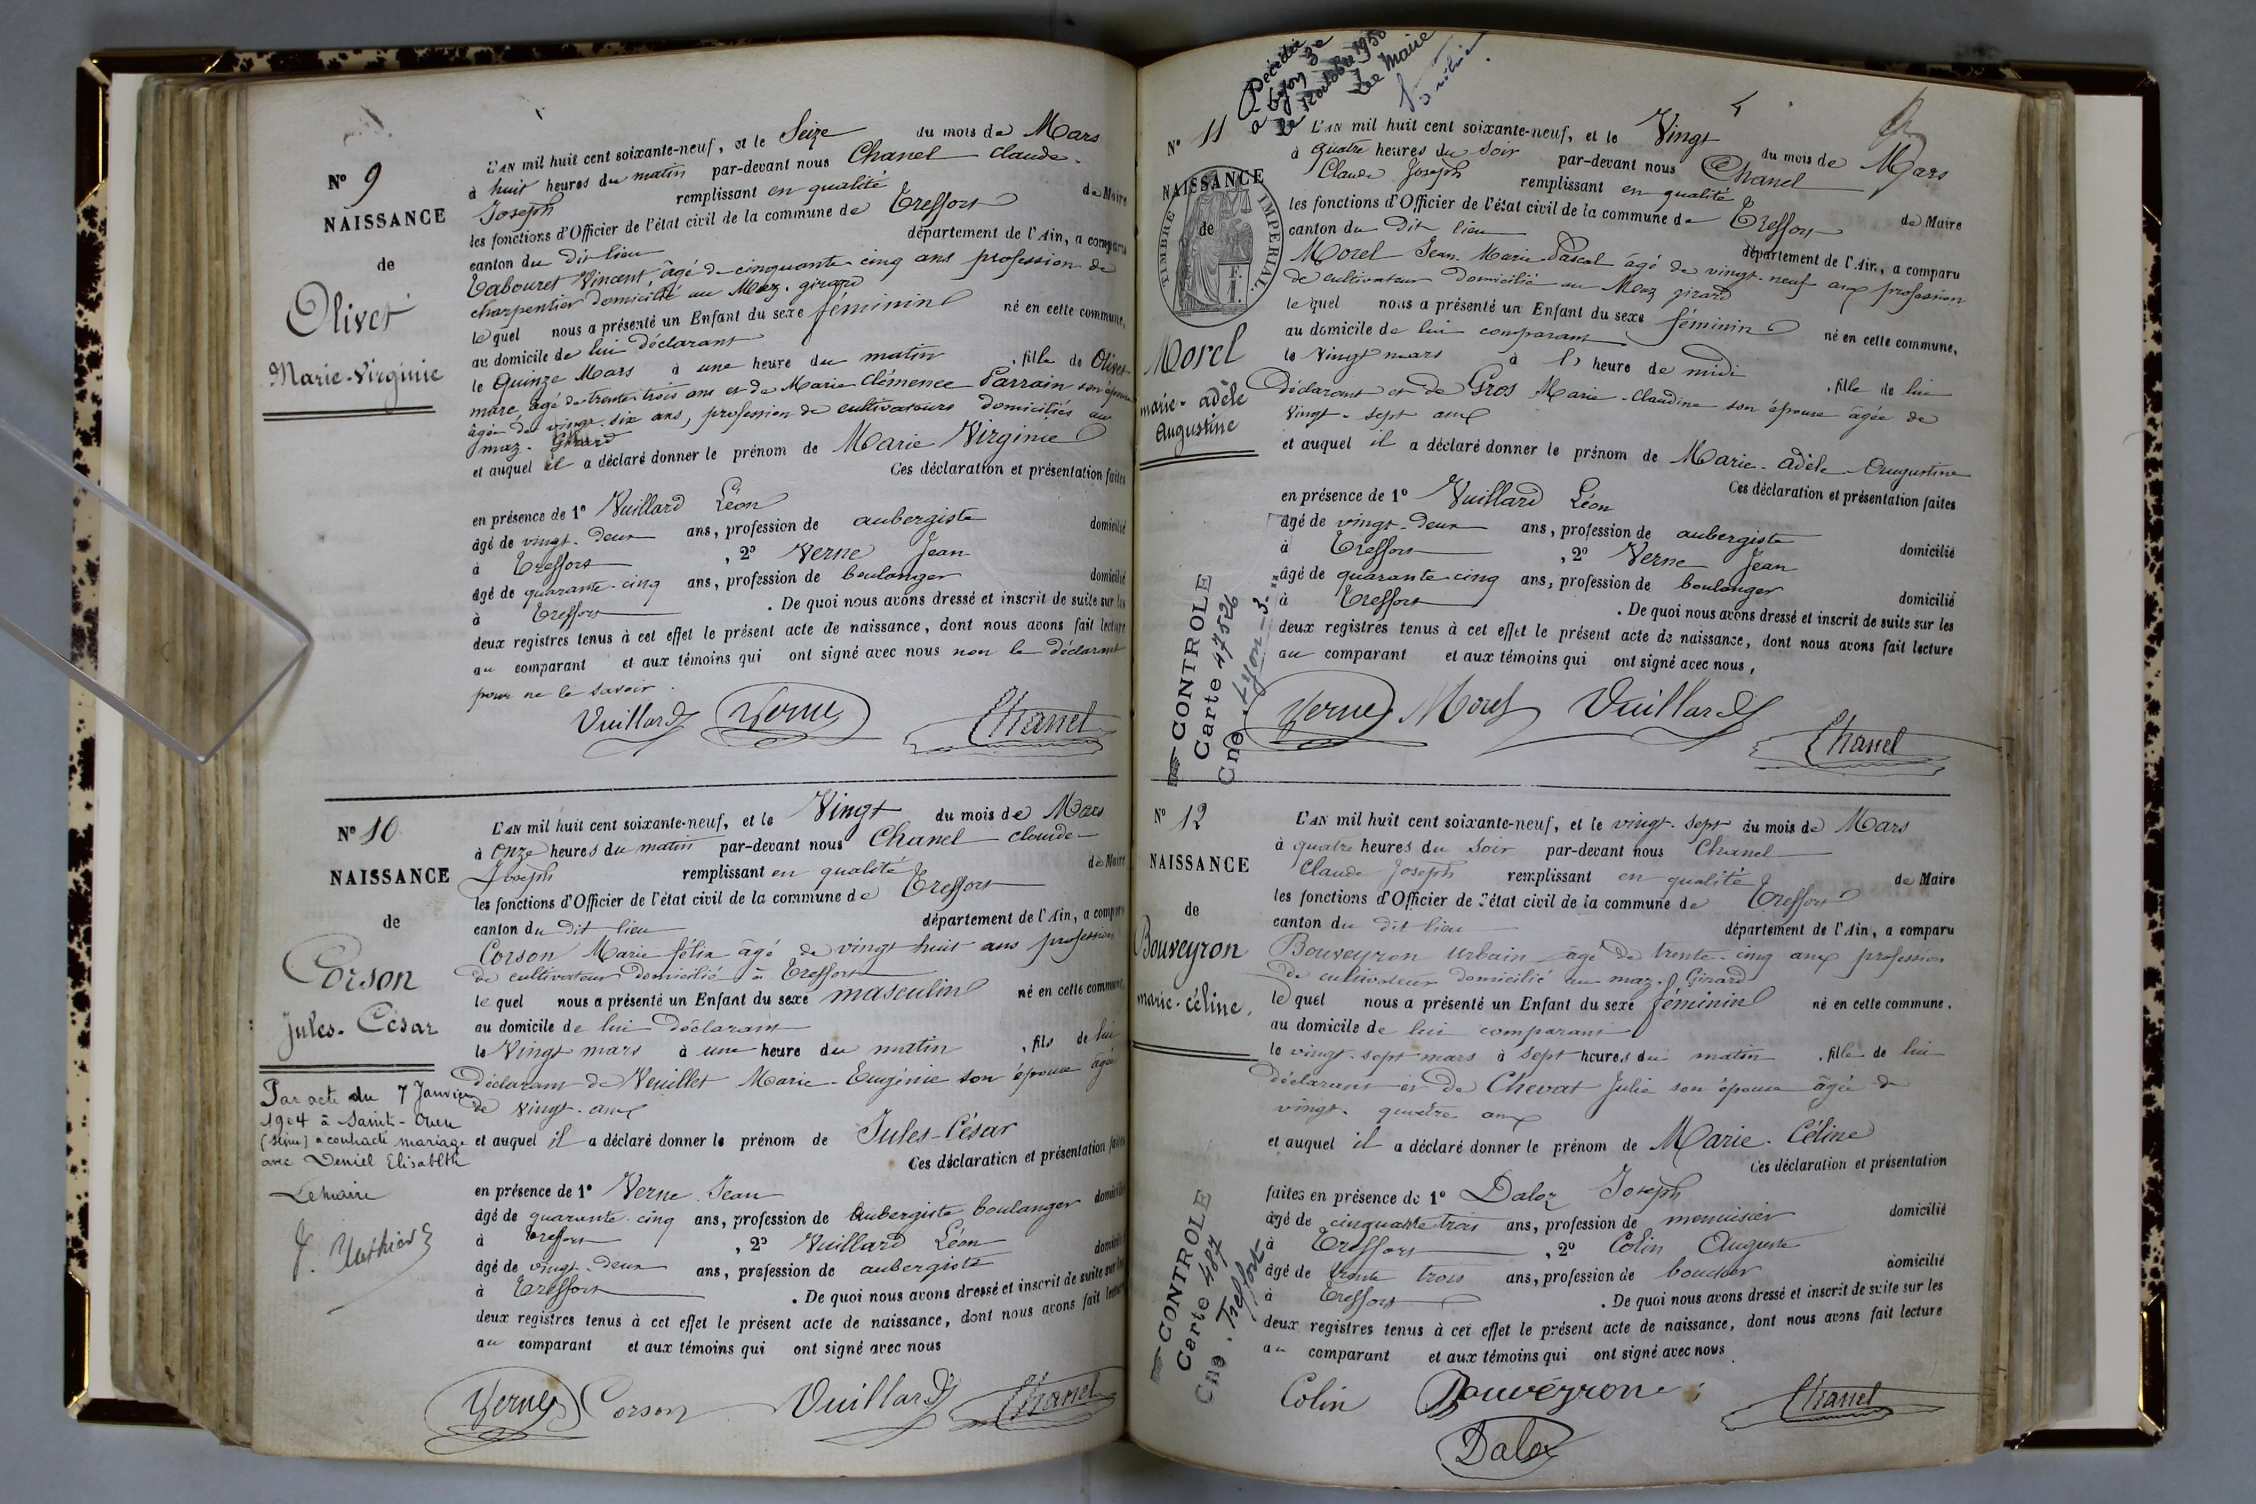 N° 9
NAISSANCE
de
Olivet
Marie-Virginie
L'AN mil huit cent soixante-neuf, et le Seize du mois de Mars
à huit heures du matin par-devant nous Chanel Claude
Joseph remplissant en qualité de Maire
les fonctions d'Officier de l'état civil de la commune de Treffort
canton du dit lieu département de l'Ain, a comparu
Tabouret Vincent, âgé de cinquante cinq ans profession de
charpentier domicilié au Maz. girard
lequel nous a présenté un Enfant du sexe féminin né en cette commune,
au domicile de lui déclarant
le Quinze Mars à une heure du matin, fille de Olivet
marc, âgé de trente trois ans et de Marie Clémence Parrain son épouse
âgée de vingt-six ans, profession de cultivateurs domiciliés au
maz. Girard
et auquel il a déclaré donner le prénom de Marie Virginie
Ces déclaration et présentation faites
en présence de 1° Vuillard Léon
âgé de vingt-deux ans, profession de aubergiste domicilié
à Treffort, 2° Verne Jean
âgé de quarante-cinq ans, profession de boulanger domicilié
à Treffort. De quoi nous avons dressé et inscrit de suite sur les
deux registres tenus à cet effet le présent acte de naissance, dont nous avons fait lecture
au comparant et aux témoins qui ont signé avec nous non le déclarant
pour ne le savoir.
Vuillard Verne Chanel
N° 10
NAISSANCE
de
Corson
Jules-César
Par acte du 7 Janvier
1904 à Saint-Ouen
(Seine) a contracté mariage
avec Deniel Elisabeth
Le maire
L'AN mil huit cent soixante-neuf, et le Vingt du mois de Mars
à Onze heures du matin par-devant nous Chanel Claude
Joseph remplissant en qualité de Maire
les fonctions d'Officier de l'état civil de la commune de Treffort
canton du dit lieu département de l'Ain, a comparu
Corson Marie félix âgé de vingt huit ans profession
de cultivateur domicilié à Treffort
lequel nous a présenté un Enfant du sexe masculin né en cette commune,
au domicile de lui déclarant
le Vingt mars à une heure du matin, fils de lui
déclarant de Veuillet Marie-Eugénie son épouse âgée
de vingt ans
et auquel il a déclaré donner le prénom de Jules-César
Ces déclaration et présentation faites
en présence de 1° Verne Jean
âgé de quarante-cinq ans, profession de Aubergiste boulanger domicilié
à Treffort, 2° Vuillard Léon
âgé de vingt-deux ans, profession de aubergiste domicilié
à Treffort. De quoi nous avons dressé et inscrit de suite sur les
deux registres tenus à cet effet le présent acte de naissance, dont nous avons fait lecture
au comparant et aux témoins qui ont signé avec nous
Verne Corson Vuillard Chanel
Décédée
à Lyon 3e
le octobre 1950
Le Maire
N° 11
NAISSANCE
de
TIMBRE IMPERIAL
Morel
marie-adèle
Augustine
CONTROLE
Carte 47526
Cne. Lyon-3
L'AN mil huit cent soixante-neuf, et le Vingt du mois de Mars
à quatre heures du soir par-devant nous Chanel
Claude Joseph remplissant en qualité de Maire
les fonctions d'Officier de l'état civil de la commune de Treffort
canton du dit lieu département de l'Ain, a comparu
Morel Jean Marie Pascal âgé de vingt-neuf ans profession
de cultivateur domicilié au Maz girard
lequel nous a présenté un Enfant du sexe féminin né en cette commune,
au domicile de lui comparant
le Vingt mars à l' heure de midi, fille de lui
déclarant et de Gros Marie-Claudine son épouse âgée de
vingt-sept ans
et auquel il a déclaré donner le prénom de Marie-Adèle Augustine
Ces déclaration et présentation faites
en présence de 1° Vuillard Léon
âgé de vingt-deux ans, profession de aubergiste domicilié
à Treffort, 2° Verne Jean
âgé de quarante-cinq ans, profession de boulanger domicilié
à Treffort. De quoi nous avons dressé et inscrit de suite sur les
deux registres tenus à cet effet le présent acte de naissance, dont nous avons fait lecture
au comparant et aux témoins qui ont signé avec nous,
Verne Morel Vuillard Chanel
N° 12
NAISSANCE
de
Bouveyron
marie-céline,
CONTROLE
Carte 487
Cne. Treffort
L'AN mil huit cent soixante-neuf, et le vingt-sept du mois de Mars
à quatre heures du soir par-devant nous Chanel
Claude Joseph remplissant en qualité de Maire
les fonctions d'Officier de l'état civil de la commune de Treffort
canton du dit lieu département de l'Ain, a comparu
Bouveyron Urbain âgé de trente-cinq ans profession
de cultivateur domicilié au maz. Girard
lequel nous a présenté un Enfant du sexe féminin né en cette commune.
au domicile de lui comparant
le vingt-sept mars à sept heures du matin, fille de lui
déclarant et de Chevat Julie son épouse âgée de
vingt-quatre ans
et auquel il a déclaré donner le prénom de Marie-Céline
Ces déclaration et présentation
faites en présence de 1° Daloz Joseph
âgé de cinquante trois ans, profession de menuisier domicilié
à Treffort, 2° Colin Auguste
âgé de trente trois ans, profession de boucher domicilié
à Treffort. De quoi nous avons dressé et inscrit de suite sur les
deux registres tenus à cet effet le présent acte de naissance, dont nous avons fait lecture
au comparant et aux témoins qui ont signé avec nous
Colin Bouveyron Chanel
Daloz